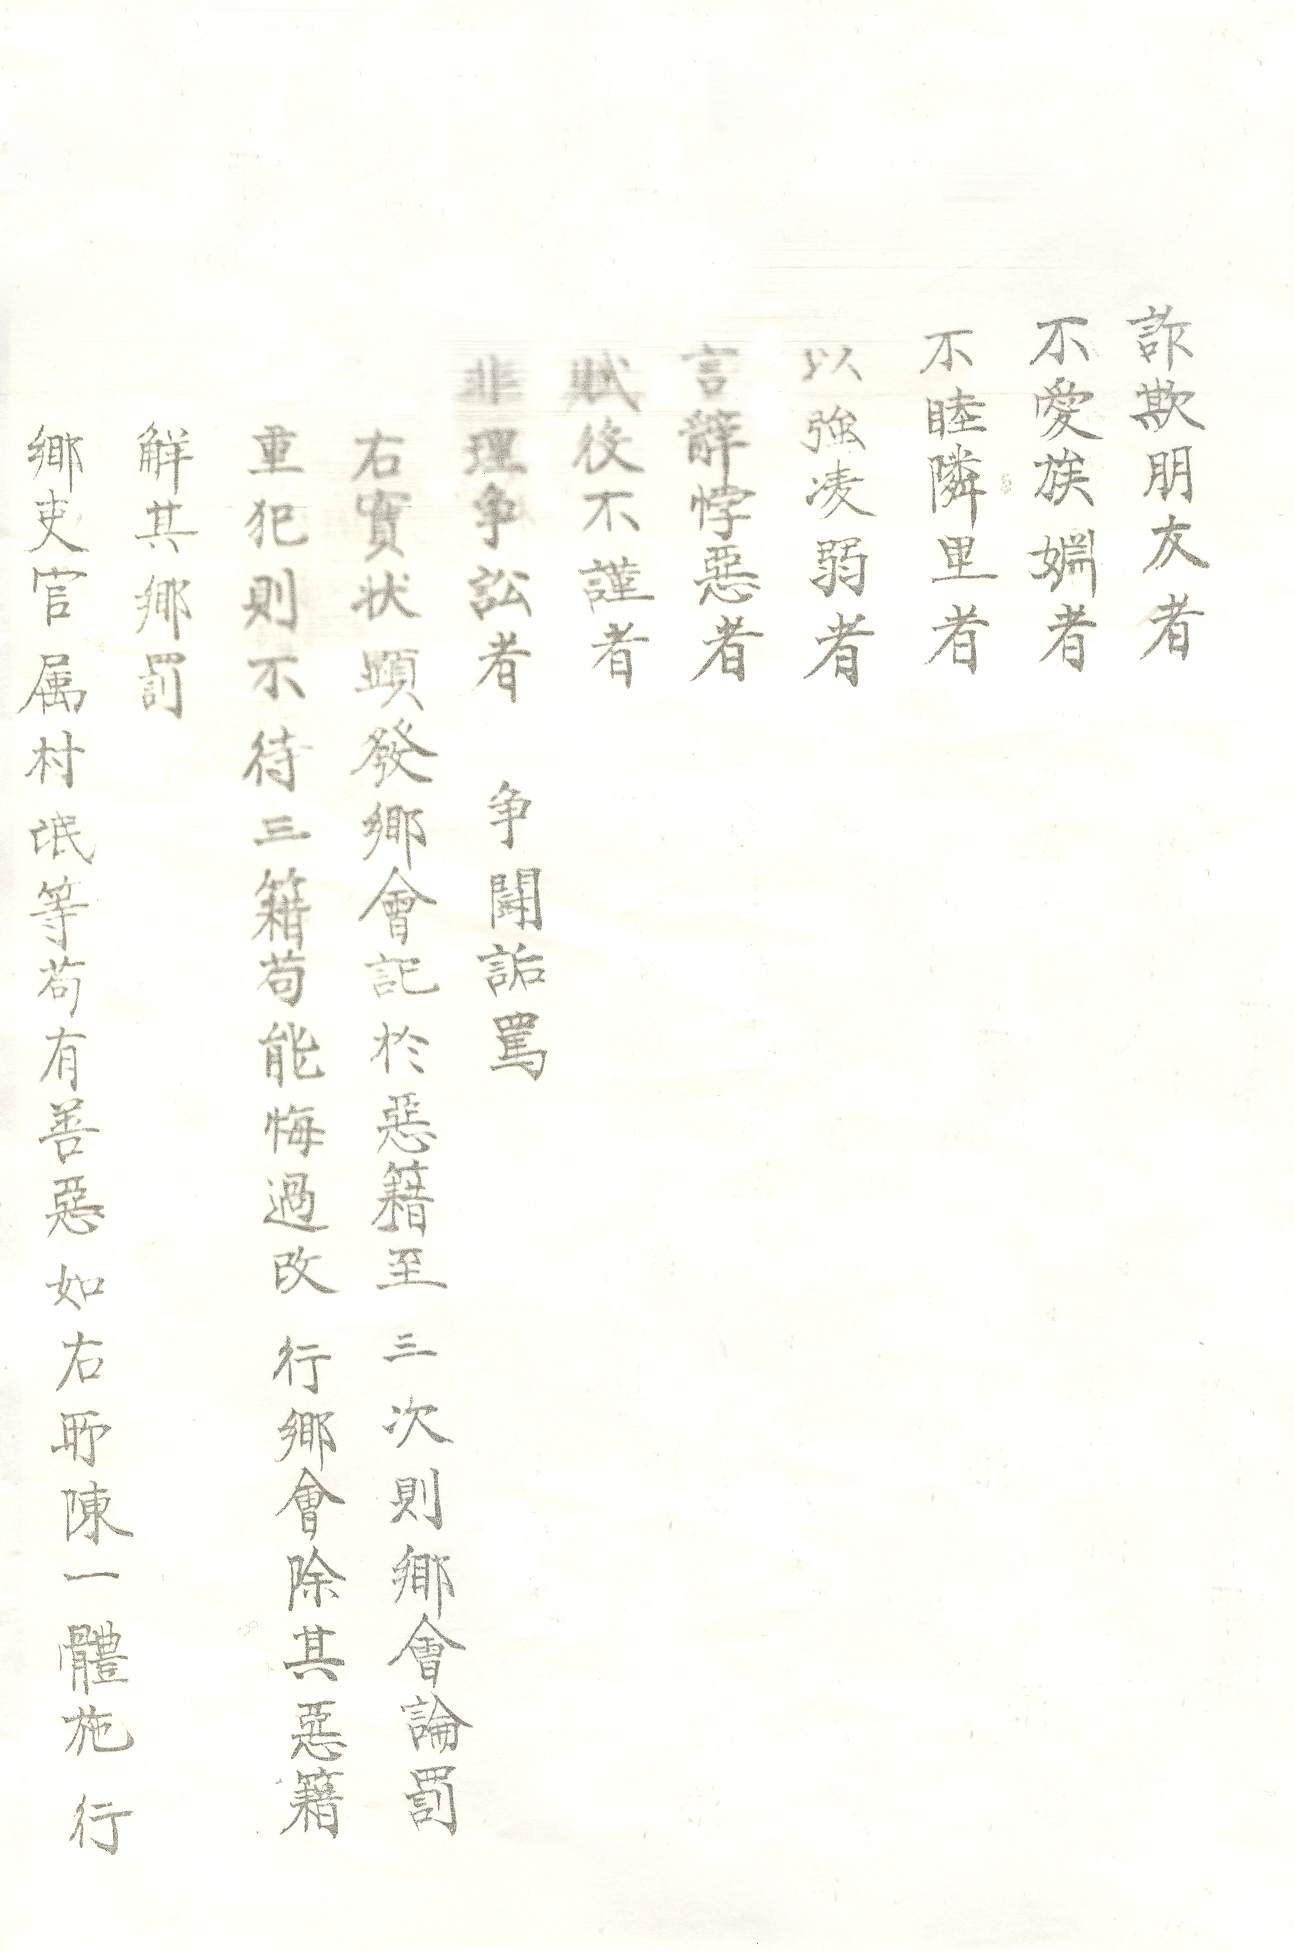 詐欺朋友者
不愛族婣者
不睦隣里者
以強凌弱者
言辭悖惡者
賦役不謹者
非理争訟者 争鬪詬罵
右實状顯發鄉會記於惡籍至三次則鄉會論罰
重犯則不待三籍苟能悔過改行鄉會除其惡籍
解其鄉罰
鄉吏官属村氓等苟有善惡如右所陳一體施行